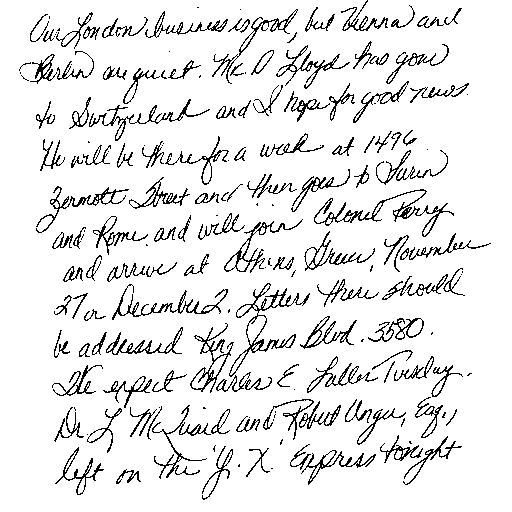 Our London business is good, but Vienna and
Berlin are quiet. Mr. D. Lloyd has gone
to Switzerland and I hope for good news.
He will be there for a week at 1496
Zermott Street and then goes to Turin
and Rome and will join Colonel Parry
and arrive at Athens, Greece, November
27 or December 2. Letters there should
be addressed King James Blvd. 3580.
We expect Charles E. Fuller Tuesday.
Dr. L. McQuaid and Robert Unger, Esq.,
left on the 'Y. X.' Express tonight